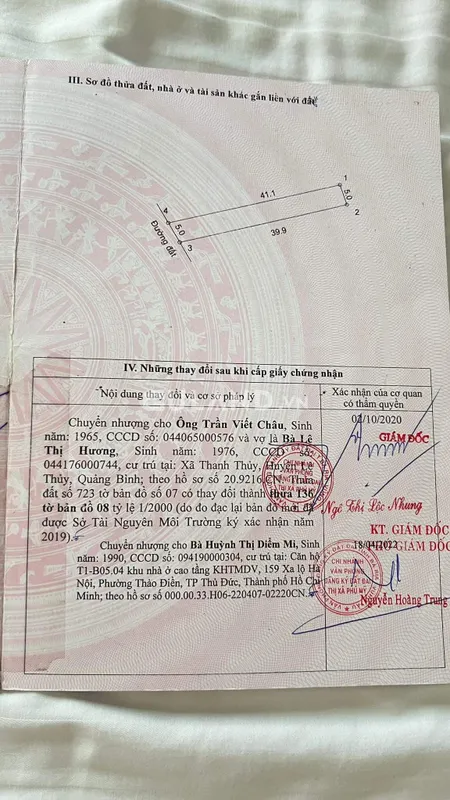 III. Sơ đồ thửa đất, nhà ở và tài sản khác gắn liền với đất
1
41.1
5.0
2
4
5.0
39.9
3
Đường đất
IV. Những thay đổi sau khi cấp giấy chứng nhận
Nội dung thay đổi và cơ sở pháp lý
Xác nhận của cơ quan
có thẩm quyền
Chuyển nhượng cho Ông Trần Viết Châu, Sinh
năm: 1965, CCCD số: 044065000576 và vợ là Bà Lê
Thị Hương, Sinh năm: 1976, CCCD số:
044176000744, cư trú tại: Xã Thanh Thủy, Huyện Lệ
Thủy, Quảng Bình; theo hồ sơ số 20.9216.CN. Thửa
đất số 723 tờ bản đồ số 07 có thay đổi thành thửa 136
tờ bản đồ 08 tỷ lệ 1/2000 (do đo đạc lại bản đồ mới đã
được Sở Tài Nguyên Môi Trường ký xác nhận năm
2019).
02/10/2020
GIÁM ĐỐC
Ngô Thị Lộc Nhung
Chuyển nhượng cho Bà Huỳnh Thị Diễm Mi, Sinh
năm: 1990, CCCD số: 09419000304, cư trú tại: Căn hộ
T1-B05.04 khu nhà ở cao tầng KHTMDV, 159 Xa lộ Hà
Nội, Phường Thảo Điền, TP Thủ Đức, Thành phố Hồ Chí
Minh; theo hồ sơ số 000.00.33.H06-220407-02220CN.
KT. GIÁM ĐỐC
18/04/2022
GIÁM ĐỐC
CHI NHÁNH
VĂN PHÒNG
ĐĂNG KÝ ĐẤT ĐAI
THỊ XÃ PHÚ MỸ
Nguyễn Hoàng Trung